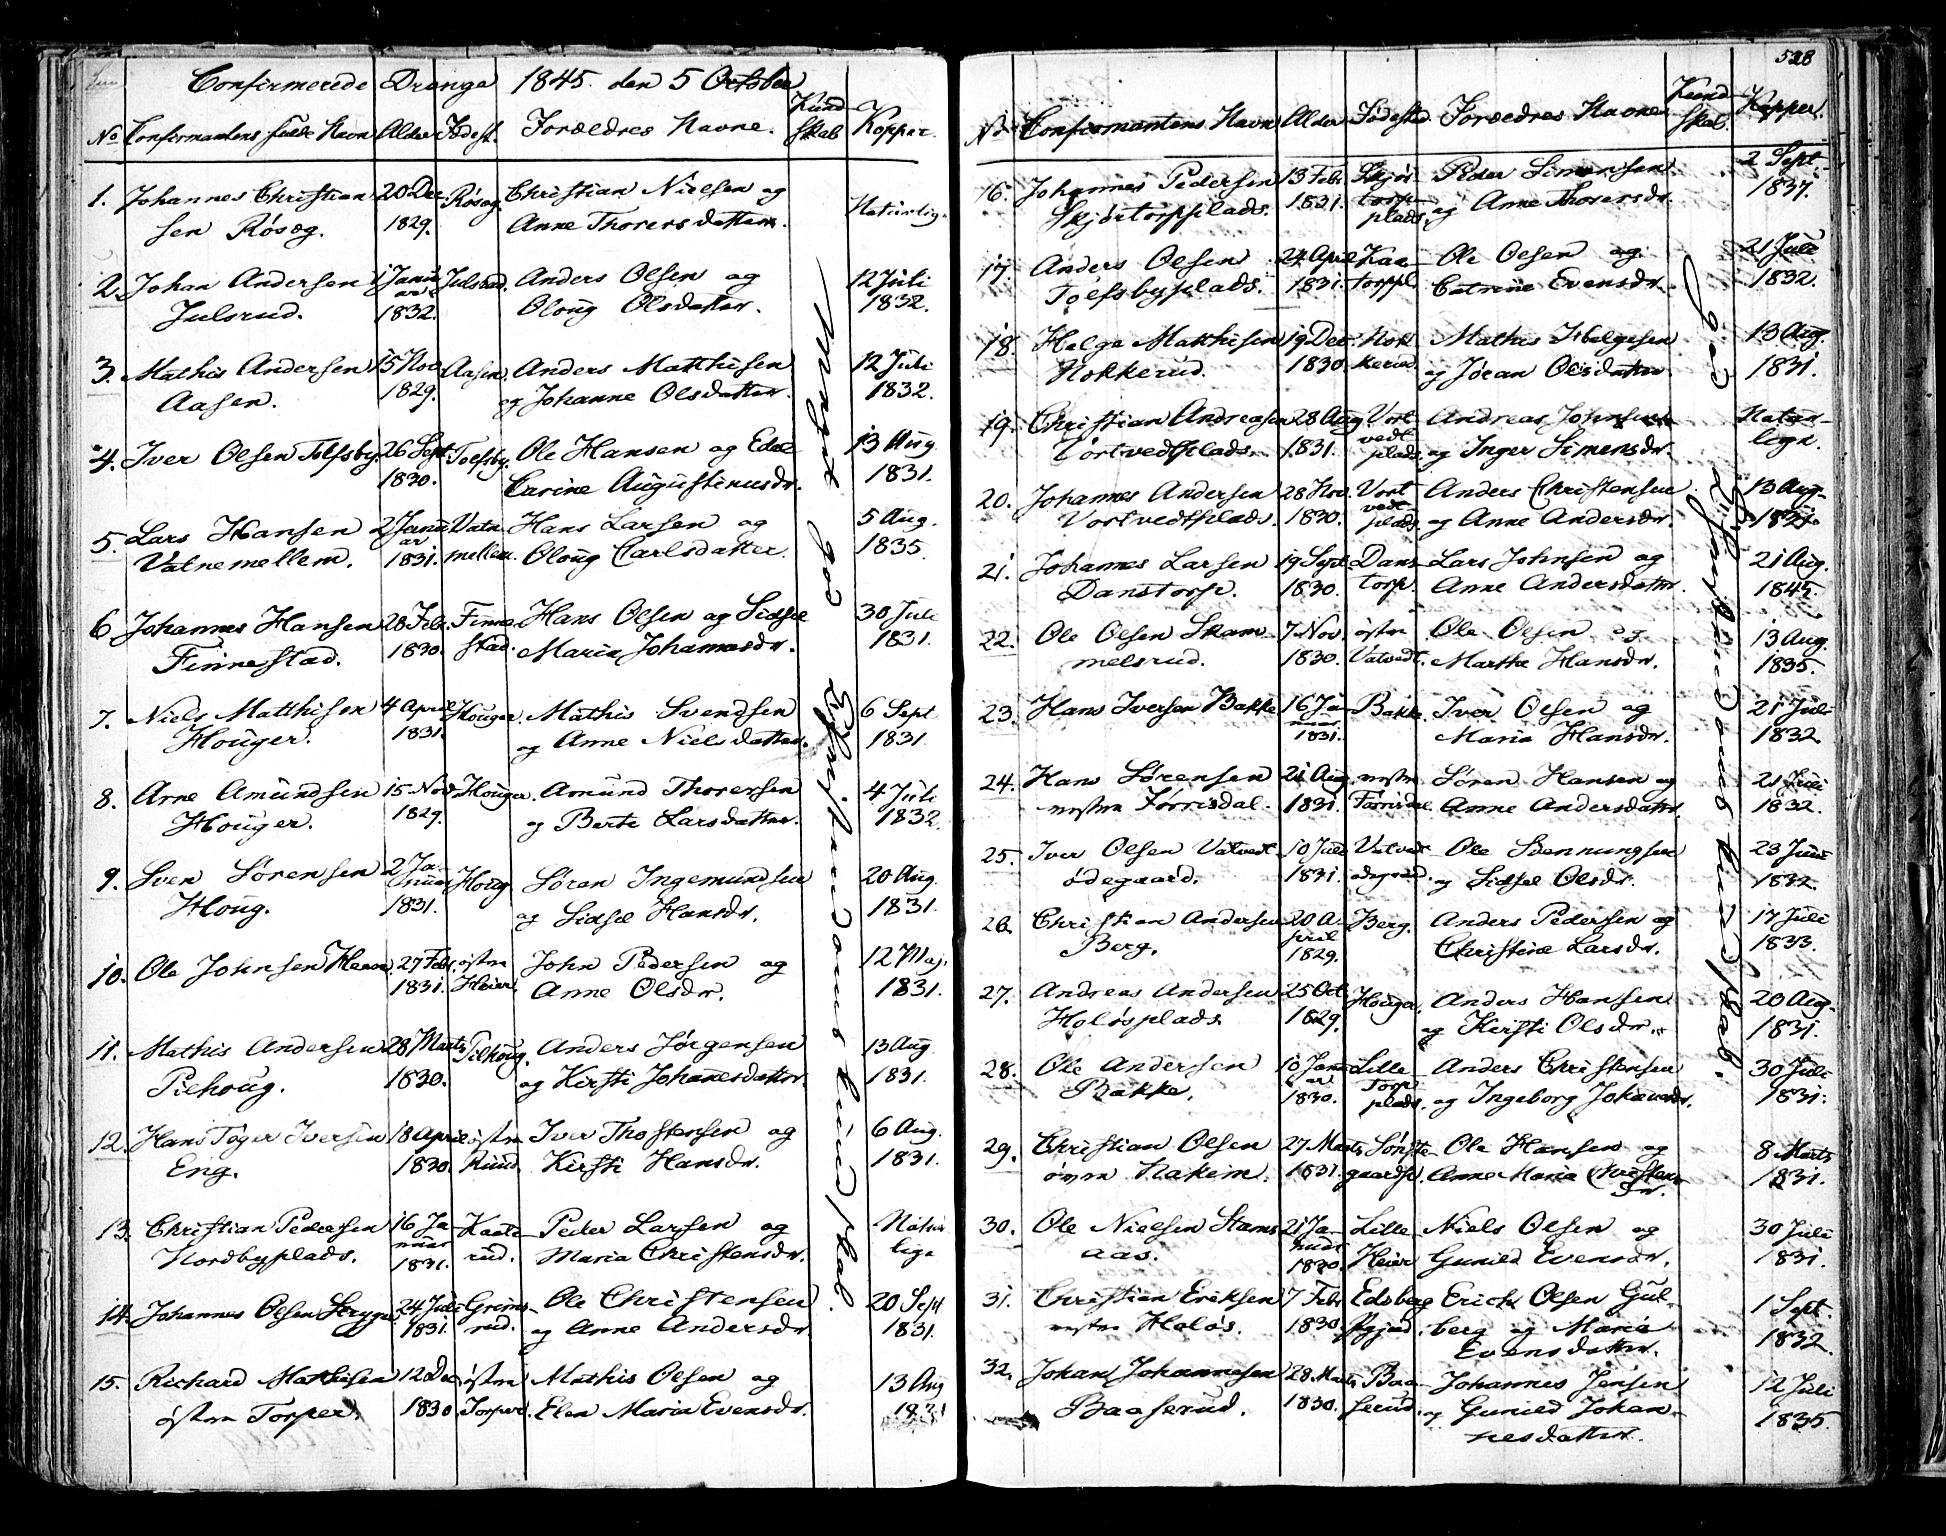 Confirmerede Drenge 1845. den 5 October
No Confirmantens fulde Navn Alder Fødest. Forældres Navne. Kund- skab Kopper.
1. Johannes Christian- 20 Dec. Røsæg. Christian Nielsen og
sen Røsæg. 1829. Anne Thorersdatter. Naturlige
2. Johan Andersen 1 Janu- Julsrud. Anders Olsen og 12 Juli
Julsrud. ar 1832. Oloug Olsdatter. 1832.
3. Mathis Andersen 15 Nov. Aasen. Anders Matthisen 12 Juli
Aasen. 1829. og Johanne Olsdatter. 1832.
4. Iver Olsen Tolfsby. 26 Sept. Tolfsby. Ole Hansen og Edel 13 Aug
1830. Carine Augustinusdr. 1831.
5. Lars Hansen 2 Janu- Vatne- Hans Larsen og 5 Aug.
Vatnemellem. ar 1831. mellem. Oloug Carlsdatter. 1835.
6. Johannes Hansen 28 Febr. Finne- Hans Olsen og Sidsel 30 Juli
Finnestad. 1830. stad. Maria Johannesdr. 1831.
7. Niels Matthisen 4 April Houger. Mathis Svendsen 6 Sept
Houger. 1831. og Anne Nielsdatter. 1831.
8. Arne Amundsen 15 Nov. Houger. Amund Thorersen 4 Juli
Houger. 1829. og Berte Larsdatter. 1832.
9. Sven Sørensen 2 Ja- Houg. Søren Ingemundsen 20 Aug.
Houg. nuar 1831. og Sidsel Hansdr. 1831.
10. Ole Johnsen 27 Febr. østre John Pedersen og 12 Maj.
1831. Heier. Anne Olsdr. 1831.
11. Mathis Andersen 28 Marts Pilhoug. Anders Jørgensen 13 Aug
Pilhoug. 1830. og Kirsti Johannesdatter. 1831.
12. Hans Toger Iversen 18 April østre Iver Thostensen og 6 Aug.
Eng. 1830. Rund. Kirsti Hansdr. 1831.
13. Christian Pedersen 16 Ja- Kaate- Peder Larsen og Natur-
Nordbyplads. nuar 1831. rud. Maria Christensdr. lige
14. Johannes Olsen 24 Juli Grims- Ole Christensen 20 Sept
1831. rud. og Anne Andersdr. 1831.
15. Richard Mathisen 12 Dec. østre Mathis Olsen og 13 Aug
østre Torper. 1830 Torper. Elen Maria Evensdr. 1831
Meget god Christendomskundskab.
528
No Confirmantens Navn Alder Fødested. Forældres Navne Kund- skab. Kopper.
16. Johannes Pedersen 13 Febr. Skjør- Peder Simensen 2 Sept
Skjørtorpplads. 1831. torp- plads. og Anne Thorersdr. 1837.
17. Anders Olsen 24 April Kaa- Ole Olsen og 21 Juli
Tolfsbyplads. 1831. torppl. Catrine Evensdr. 1832.
18. Helge Matthisen 19 Dec. Nok- Mathis Helgesen 13 Aug.
Nokkerud. 1830. kerud. og Jøran Olsdatter 1831.
19. Christian Andreasen 28 Aug Vort- Andreas Johnsen Natur-
Vortvedtplads. 1831. vedt- plads. og Inger Simensdr. lige.
20. Johannes Andersen 28 Nov. Vort- Anders Christensen 13 Aug.
Vortvedtplads. 1830. vedt- plads. og Anne Andersdr. 1831.
21. Johannes Larsen 19 Sept. Dans- Lars Johnsen og 21 Aug.
Danstorp. 1830. torp. Anne Andersdatter. 1845.
22. Ole Olsen Skam- 7 Nov. østre Ole Olsen og 13 Aug.
melsrud. 1830. Vatvedt. Marthe Hansdr. 1835.
23. Hans Iversen Bakke 16 Ja- Bakke. Iver Olsen og 21 Juli
nuar 1831. Maria Hansdr. 1832.
24. Hans Sørensen 21 Aug. vestre Søren Hansen og 21 Juli
vestre Førrisdal. 1831. Førrisdal. Anne Andersdatter. 1832.
25. Iver Olsen Vatvedt 10 Juli Vatvedt- Ole Bennungsen 23 Juni
ødegaard. 1831. ødegaard. og Sidsel Olsdr. 1832.
26. Christian Andersen 20 A- Berg. Anders Pedersen og 17 Juli
Berg. pril 1829. Christine Larsdr. 1833.
27. Andreas Andersen 25 Oct. Houger. Anders Hansen 20 Aug.
Holøsplads. 1829. og Kirsti Olsdr. 1831.
28. Ole Andersen 10 Janu- Lille Anders Christensen 30 Juli
Bakke. ar 1830. Torp- plads. og Ingeborg Johannesdr. 1831.
29. Christian Olsen 27 Marts Ole Hansen og 8 Marts
øvre Rakim. 1831. Anne Maria Christens- dr. 1831.
30. Ole Nielsen Stams- 21 Ja- Lille Niels Olsen og 30 Juli
aas. nuar 1830. Heier Gunild Evensdr. 1831.
31. Christian Eriksen 7 Febr Edsberg Erich Olsen Gul- 1 Sept.
vestre Holøs. 1830. berg og Maria 1832.
Evensdatter.
32. Johan Johannesen 28 Marts Baa- Johannes Jensen 12 Juli
Baaserud. 1830. serud. og Gunild Johan- 1835.
nesdatter.
God Christendomskundskab.